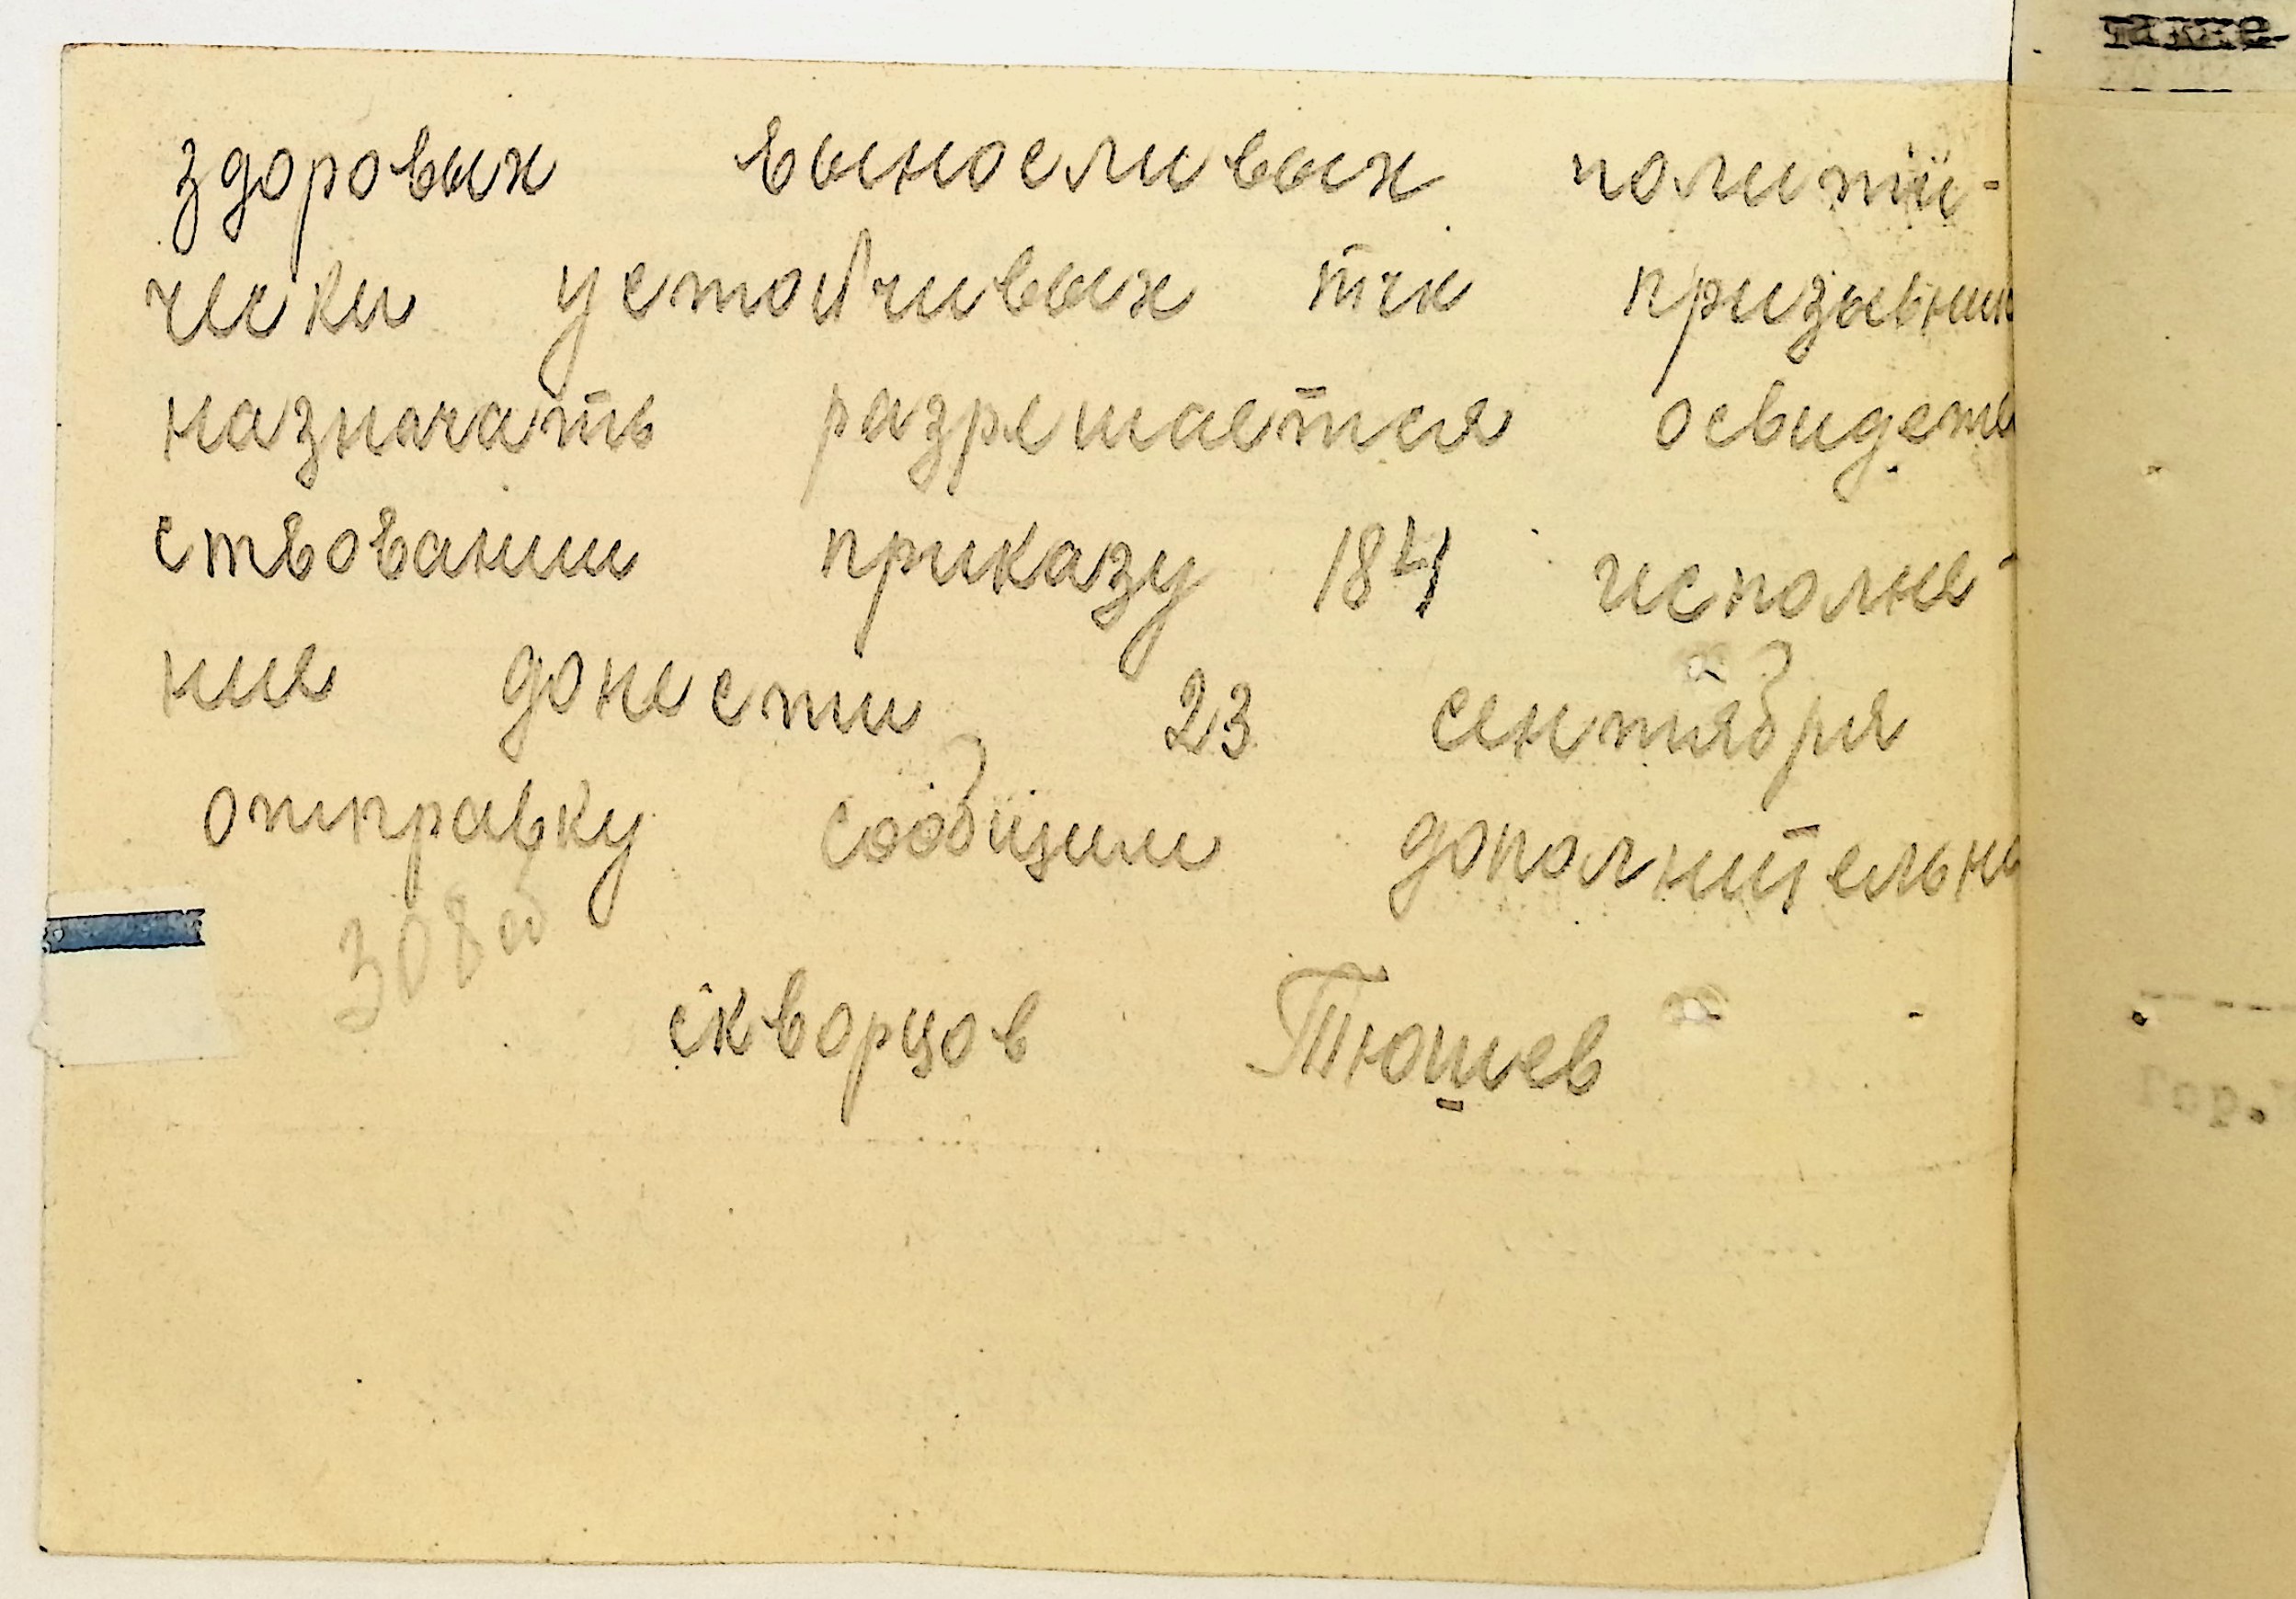 такие
здоровых выносливых полити-
чески устойчивых тчк призывник
назначать разрешается освидете
ствовании приказу 184 исполне-
ние донести 23 сентября
отправку сообщим дополнительно
308
скворцов Тюшев